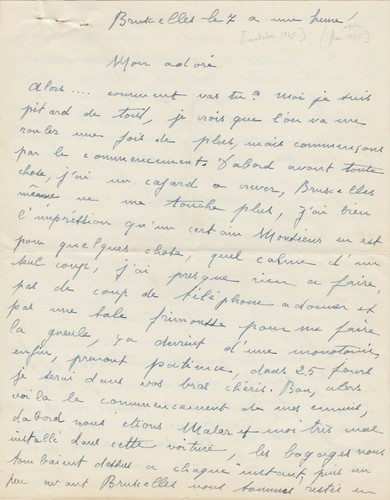 Bruxelles le 7 a une heure!
[octobre 1945]
Mon adoré
Alors.... comment vas tu? Moi je suis
pitard de tout, je crois que l'on va me
rouler une fois de plus, mais commençons
par le commencement. D'abord avant toute
chose, j'ai un cafard a crever, Bruxelles
même ne me touche plus, j'ai bien
l'impréssion qu'un certain Monsieur en est
pour quelques chose, quel calme d'un
seul coup, j'ai presque rien a faire,
pas de coup de téléphone a donner et
pas une sale frimousse pour me faire
la gueule, ça devient d'une monotonie,
enfin, prenont patience, dans 25 jours
je serai dans vos bras chéris. Bon, alors
voila le commencement de mes ennuis,
dabord nous étions Malar et moi très mal
installé dans cette voiture, les bagages nous
tombaient dessus a chaque instant, puis un
peu avant Bruxelles nous sommes restés en